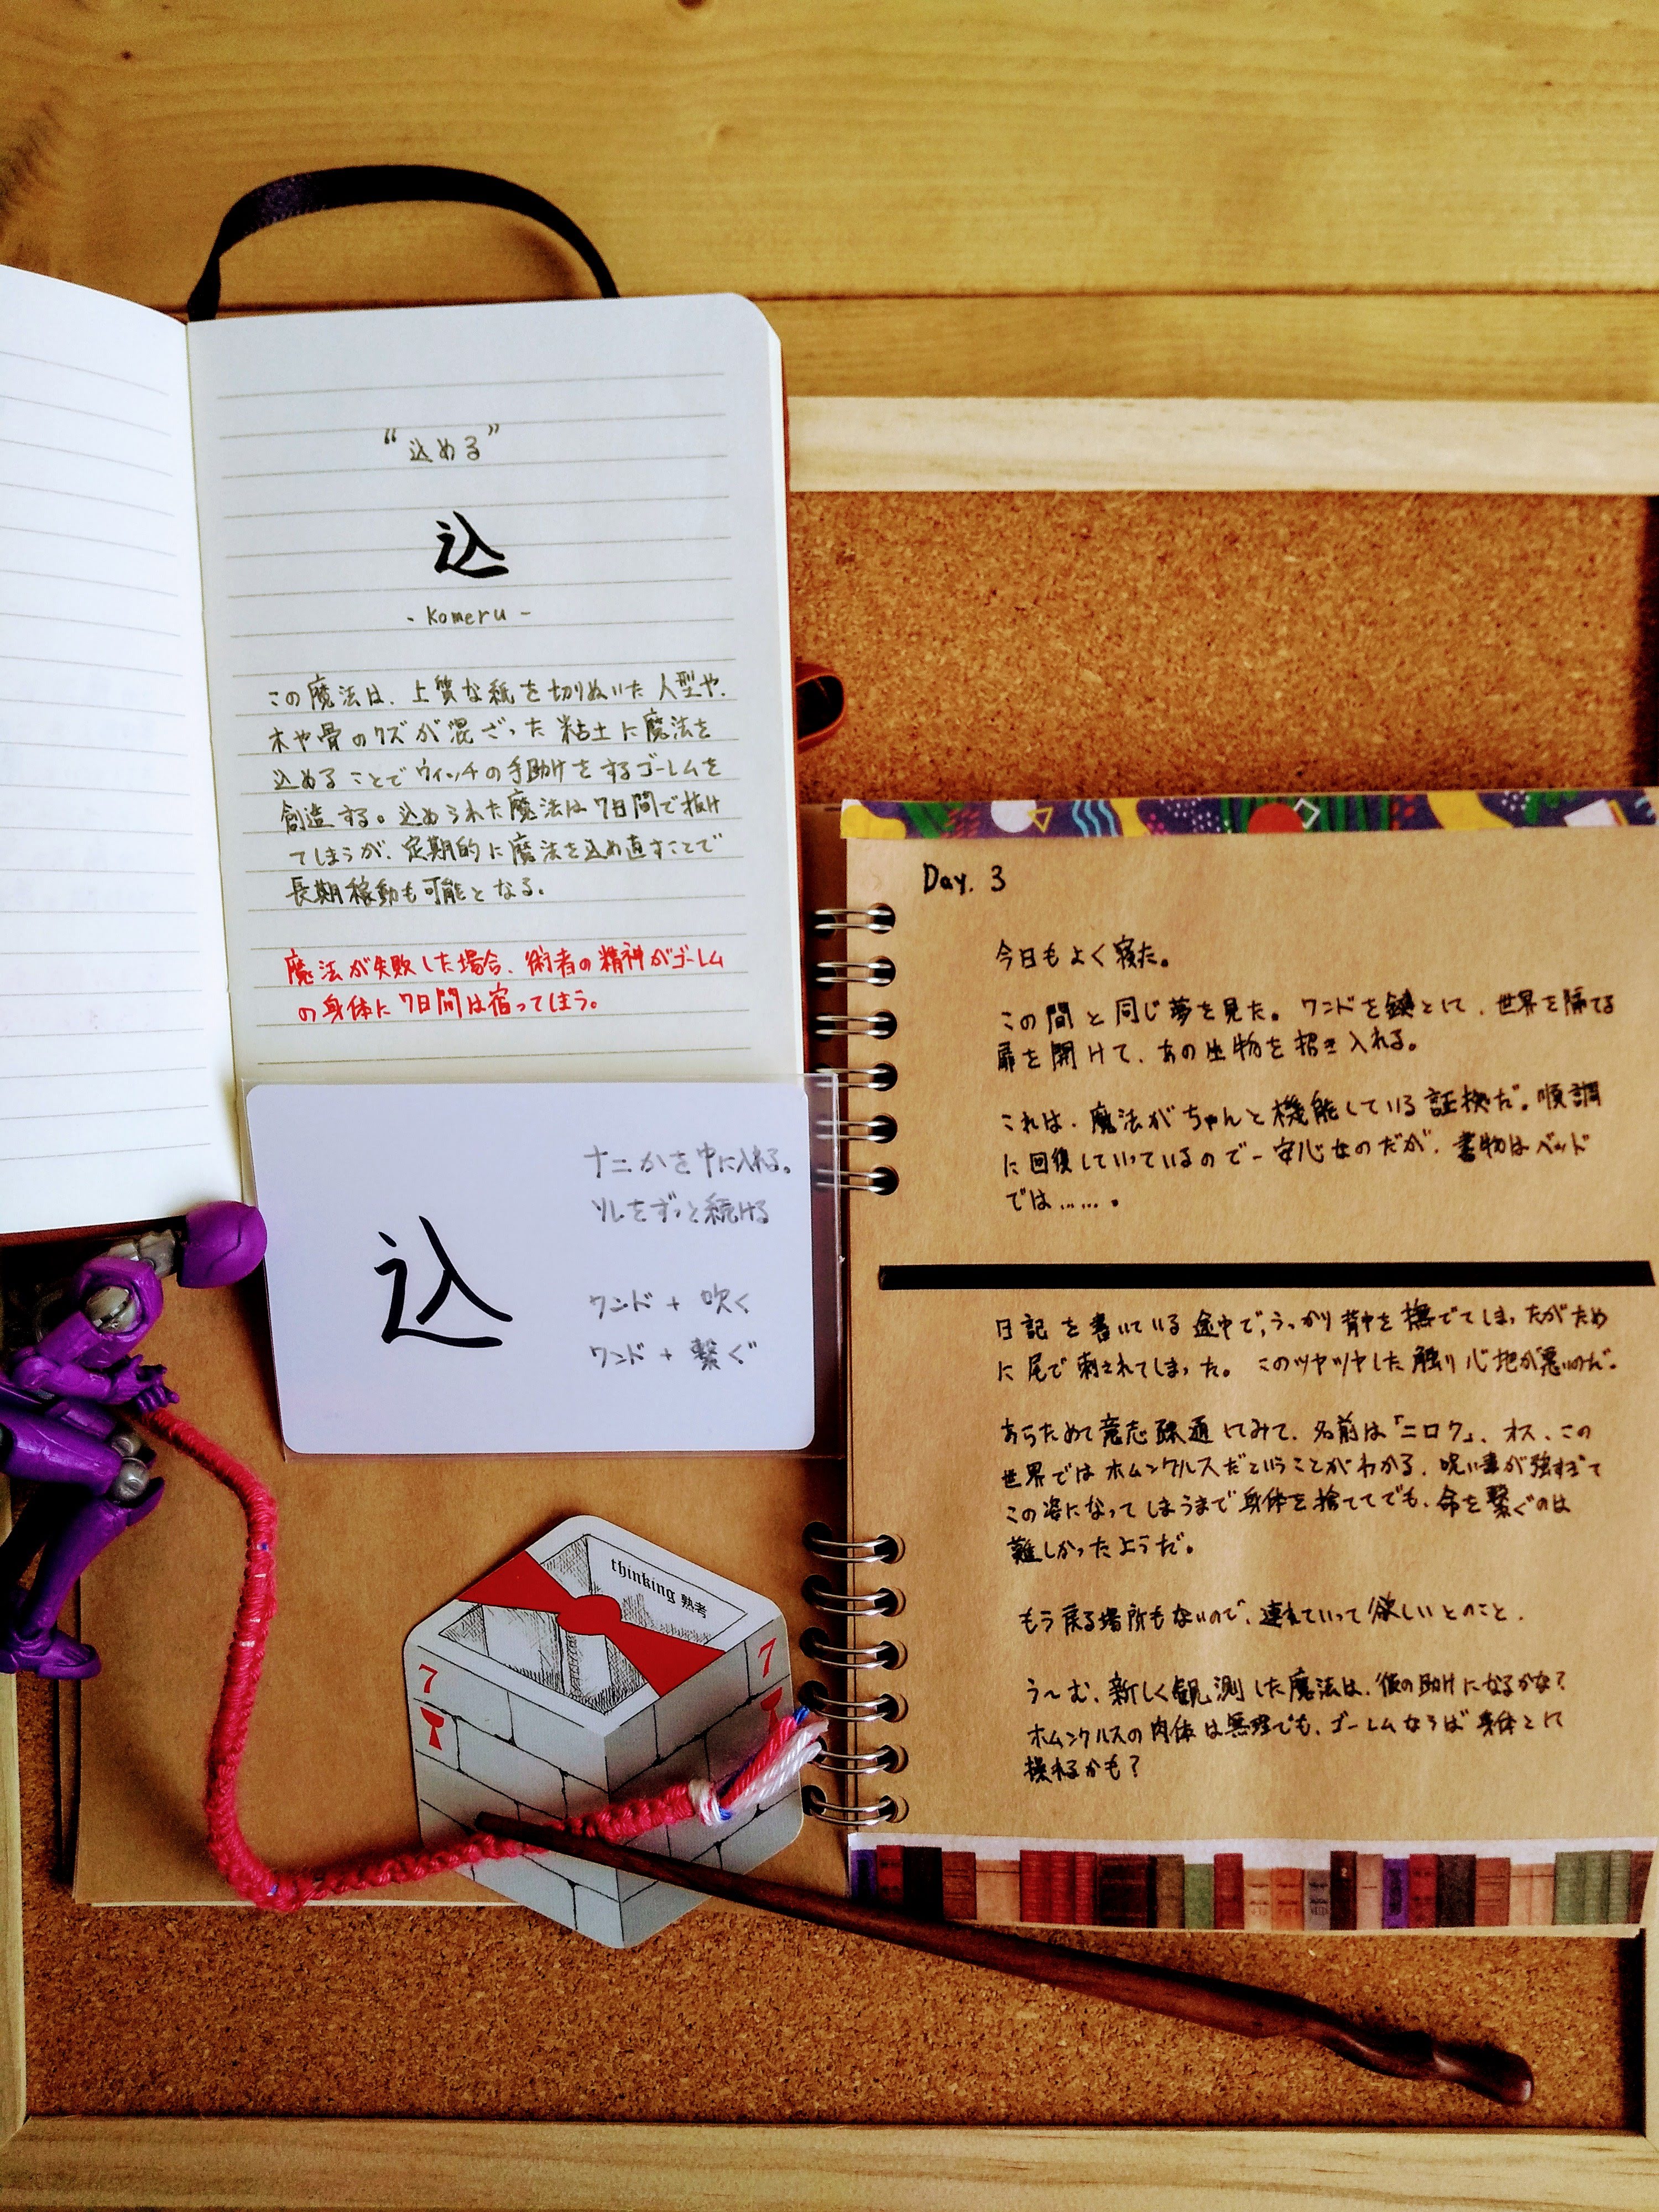 “込める”
込
- Komeru -
この魔法は、上質な紙を切りぬいた人型や、
木や骨のクズが混ざった粘土に魔法を
込めることでウィッチの手助けをするゴーレムを
創造する。込められた魔法は7日間で抜け
てしまうが、定期的に魔法を込め直すことで
長期稼動も可能となる。
魔法が失敗した場合、術者の精神がゴーレム
の身体に7日間は宿ってしまう。
ナニかを中に入れる。
ソレをずっと続ける
込
ワンド + 吹く
ワンド + 繋ぐ
thinking 熟考
7
7
Day. 3
今日もよく寝た。
この間と同じ夢を見た。ワンドを鍵として、世界を隔てる
扉を開けて、あの生物を招き入れる。
これは、魔法がちゃんと機能している証拠だ。順調
に回復していっているので一安心なのだが、書物はベッド
では……。
日記を書いている途中で、うっかり背中を撫でてしまったがため
に尾で刺されてしまった。このツヤツヤした触り心地が悪いのだ。
あらためて意志疎通してみて、名前は「ニロク」、オス、この
世界ではホムンクルスだということがわかる。呪い毒が強すぎて
この姿になってしまうまで身体を捨ててでも、命を繋ぐのは
難しかったようだ。
もう戻る場所もないので、連れていって欲しいとのこと。
う〜む、新しく観測した魔法は、彼の助けになるかな?
ホムンクルスの肉体は無理でも、ゴーレムならば身体として
操れるかも?